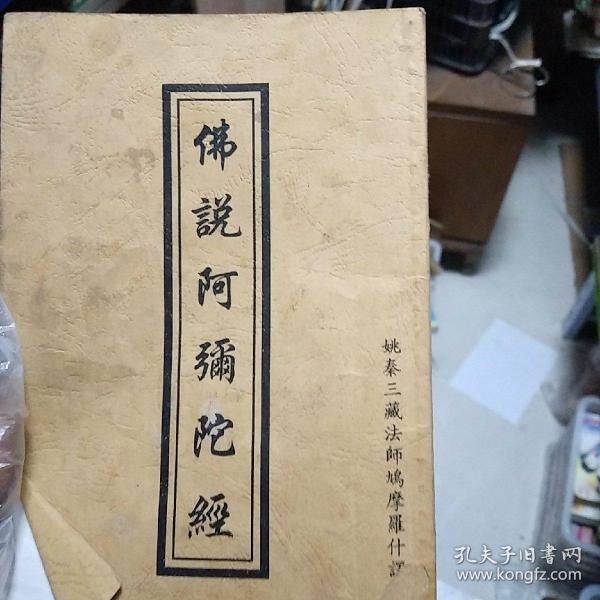 佛說阿彌陀經
姚秦三藏法師鳩摩羅什譯
孔夫子旧书网
www.kongfz.com